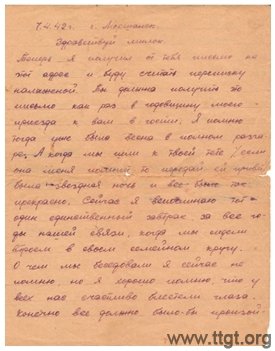 7.4.42 г. г. Моршанск.
Здравствуй милок
Теперь я получил от тебя письмо на
этот адрес и буду считать переписку
налаженой. Вы должна получить это
письмо как раз в годовщину моего
приезда к вам в гости. Я помню
тогда уже была весна в полном разга
ре, А когда мы шли к твоей тете (если
она меня помнит то передай ей привет)
была звездная ночь и все было так
прекрасно. Сейчас я вспоминаю тот
один единственный завтрак за все го-
ды нашей связи, когда мы сидели
втроем в своем семейном кругу.
О чем мы беседовали я сейчас не
помню, но я хорошо помню, что у
всех нас счастливо блестели глаза.
Конечно все должно было-бы произой-
www.ttgt.org